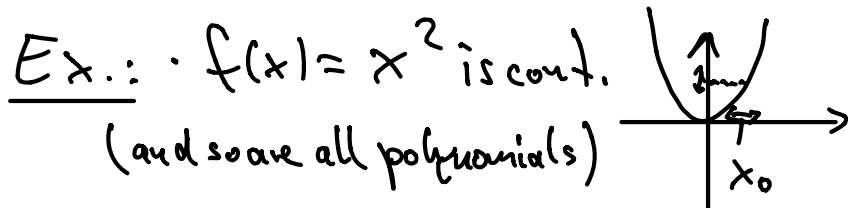 Ex.: · f(x) = x² is cont.
(and so are all polynomials)
x₀